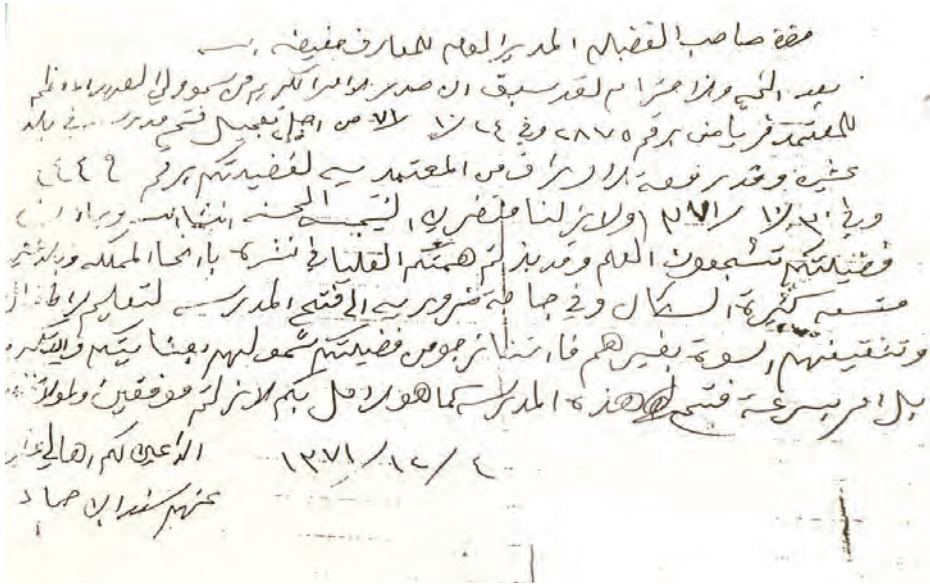 حضرة صاحب الفضيلة المدير العام للمعارف حفظه الله
بعد التحية والاحترام لقد سبق ان صدر الامر الكريم من سمو ولي العهد المعظم
للمعتمد في رياض برقم ٢٨٧٥ وفي ٢٤/١٠/٧١ من اجل تعجيل فتح مدرسة في بلد
عشيرة وقد رفعة الاوراق من المعتمديه لفضيلتكم برقم ٤٤٤٩
وفي ٣٠/١٠/٣٧١ ولا نزلنا منتضرين النتيجة الحسنه
فضيلتكم تشجعون العلم وقد بذلتم همتكم العليا في نشره بانحاء المملكه
متسعه كثيرة السكان وفي حاجة ضروريه الى فتح المدرسه لتعليم الاطفال
وتثقيفهم اسوة بغيرهم فاننا نرجو من فضيلتكم شمولهم بعنايتكم والتكرم
بل امر بسرعة فتح هذه المدرسه كما هو الامل بكم لا زلتم موفقين
الداعين لكم اهالي ١٣٧١/١٢/٤
عنهم سند الاحماد